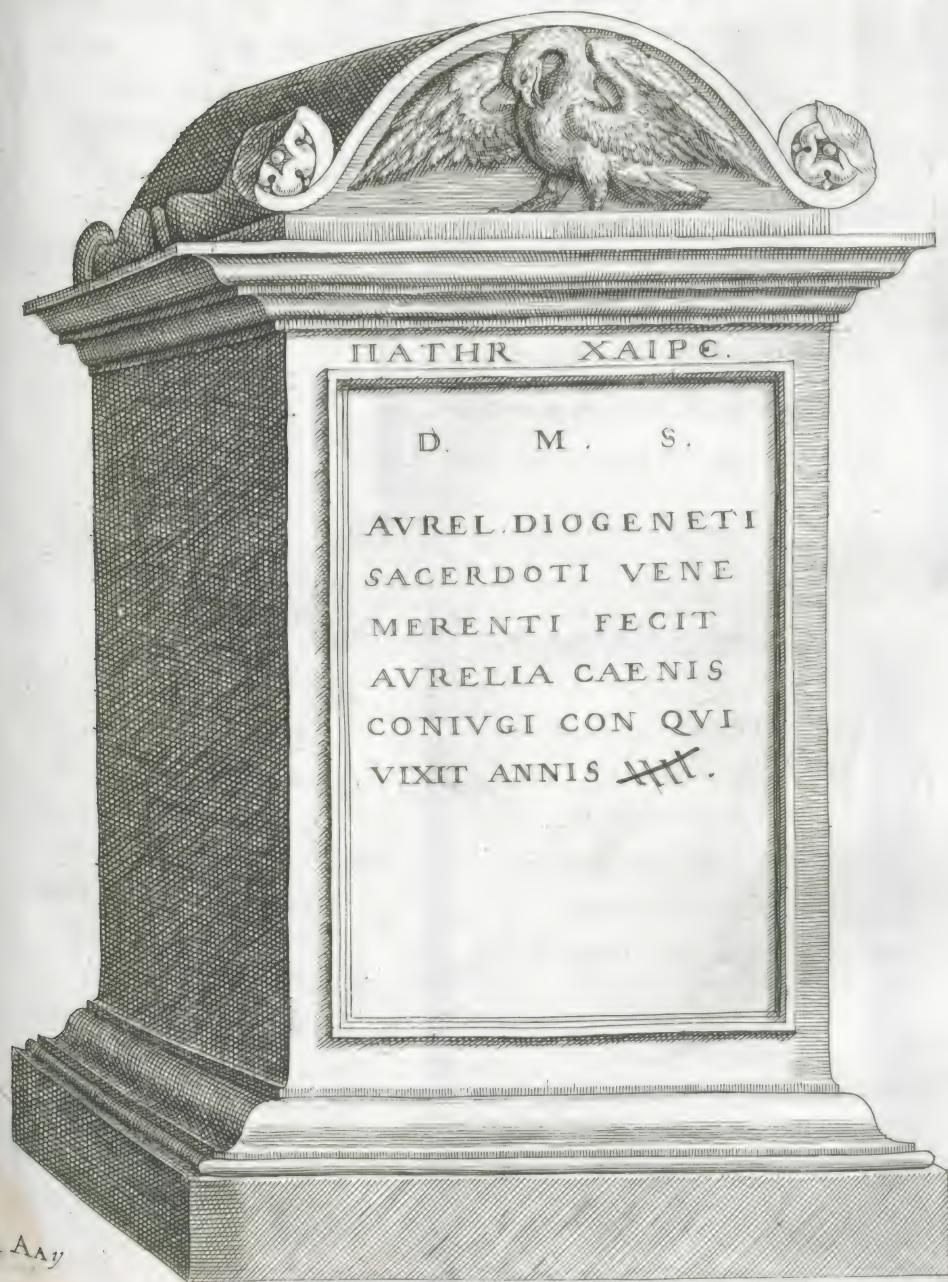 ΠΑΤΗΡ ΧΑΙΡЄ.
D. M. S.
AVREL.DIOGENETI
SACERDOTI VENE
MERENTI FECIT
AVRELIA CAENIS
CONIVGI CON QVI
VIXIT ANNIS